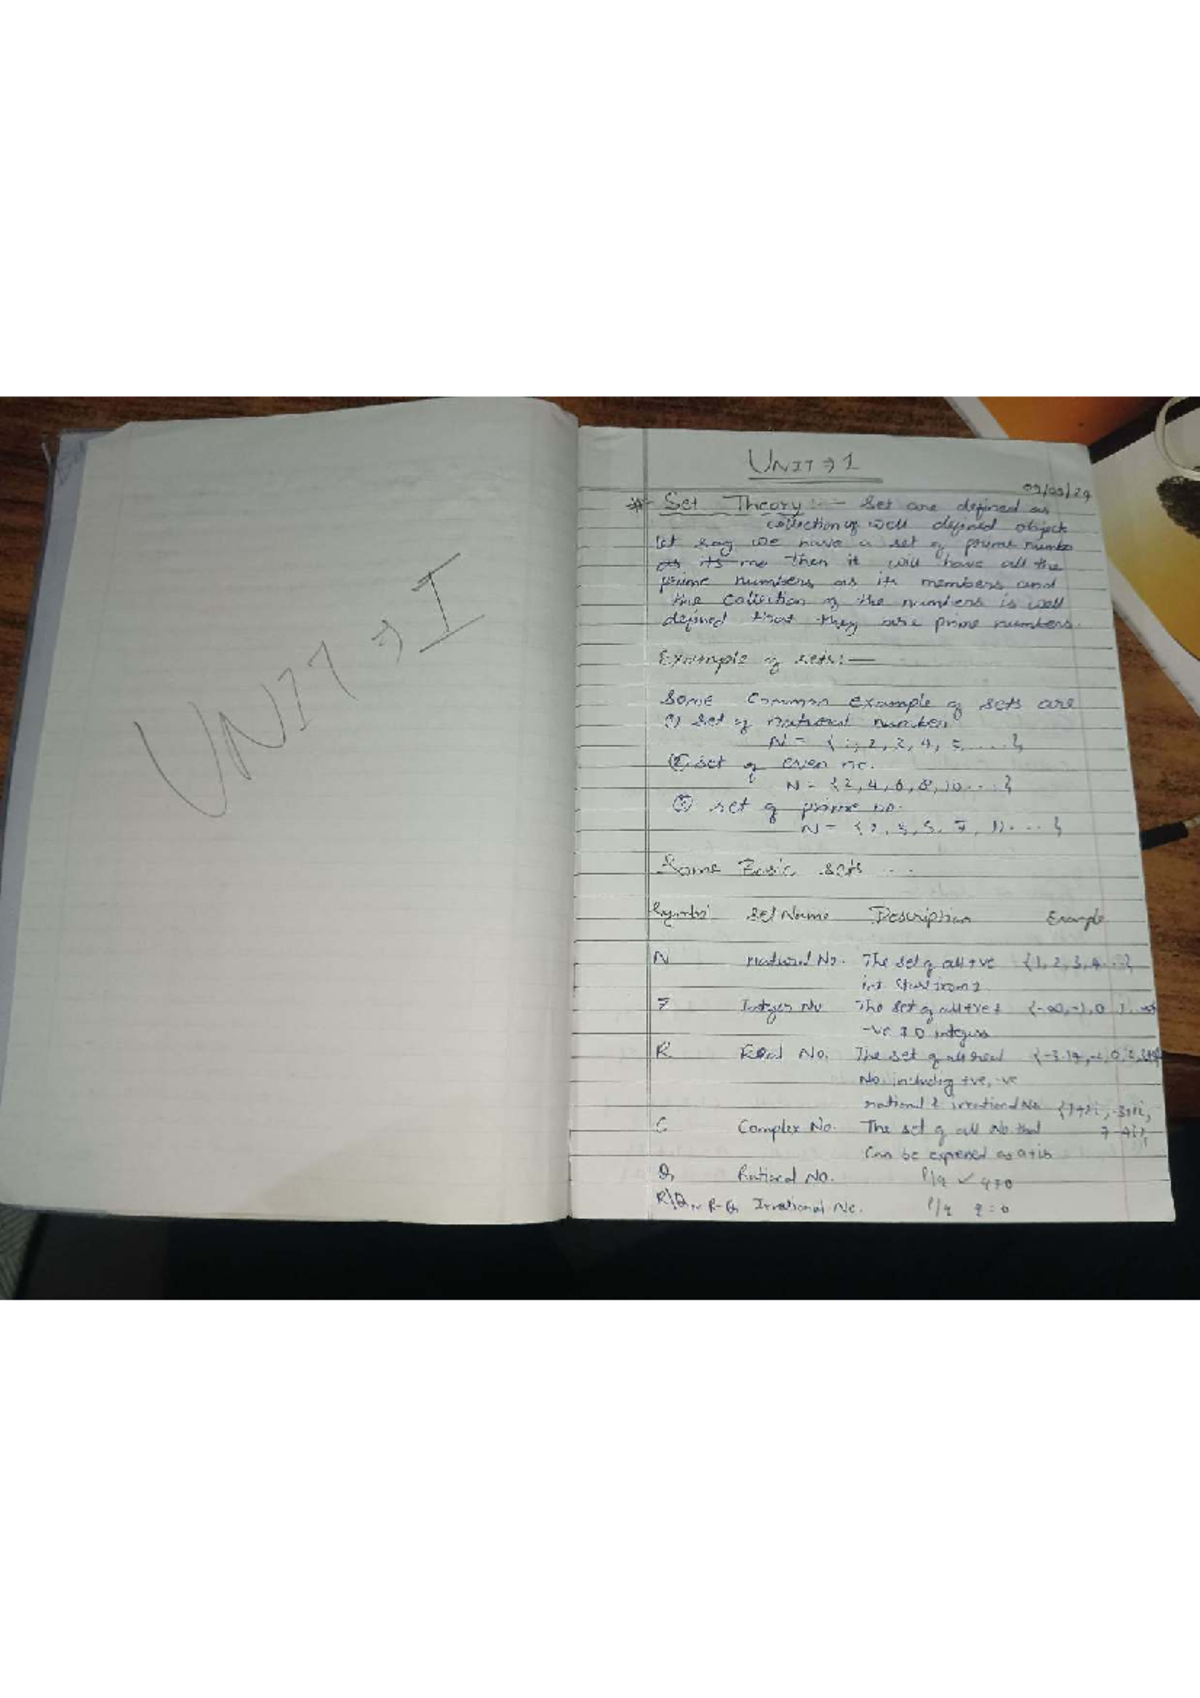 UNIT ⇒ I
UNIT ⇒ 1
09/09/24
Set Theory :- Set are defined as
collection of well defined object
let say we have a set of prime numbe
as its me then it will have all the
prime numbers as its members and
the collection of the numbers is well
defined that they are prime numbers.
Example of sets:—
Some common example of sets are
① set of natural number
N = {1, 2, 3, 4, 5, ....}
② set of even no.
N = {2, 4, 6, 8, 10...}
③ set of prime no.
N = {2, 3, 5, 7, 11....}
Some Basic sets ..
Symbol Set Name Description Example
N Natural No. The set of all +ve {1, 2, 3, 4...}
int. start from 1
Z Integer No The set of all +ve & {-∞, -1, 0, 1
-ve & 0 integers
R Real No. The set of all real {-3.14, -1, 0, 2,
No. including +ve, -ve
rational & irrational No.
C Complex No. The set of all No. that {1+2i, -3+i,
Can be expressed as a+ib 7-4i},
Q Rational No. P/q q≠0
R\Q or R-Q Irrational No. P/q q=0